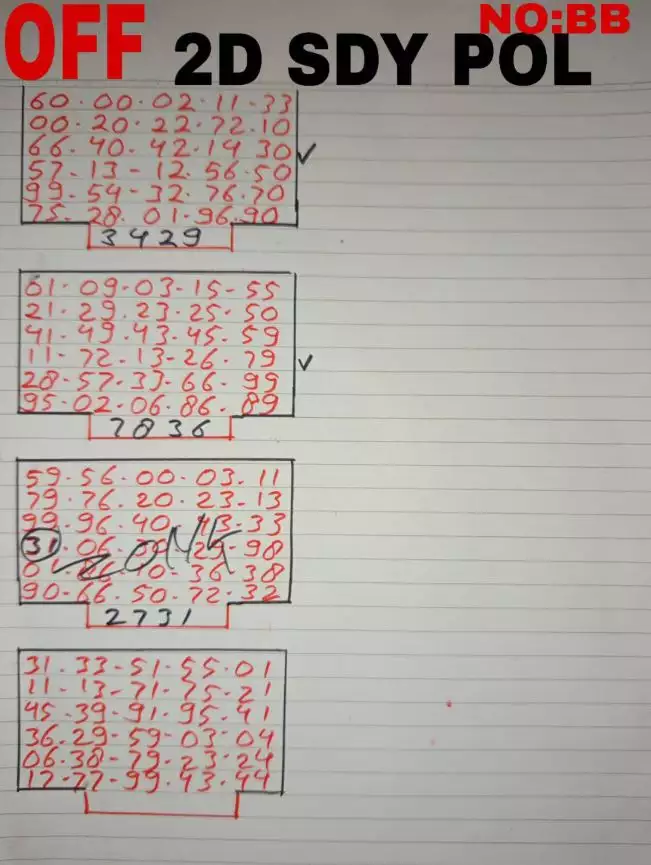 NO:BB
OFF 2D SDY POL
60.00.02.11-33
00.20.22.72.10
66.40.42.14 30
57.13-12.56.50
99.54-32.76.70
75.28.01.96.90
3429
61.09-03-15-55
21.29.23.25-50
41-49.43.45.59
11-72.13-26.79
28-57.33-66-99
95-02.06.86.89
7836
59.56.00.03.11
79.76.20.23-13
99.96.40.43.33
31.06.
90-66.50.72.32
2731
31.33-51-55.01
11-13-71-75-21
45.39-91-95.41
36.29-59-03-04
06.38-79-23-24
17-77-99-43-44